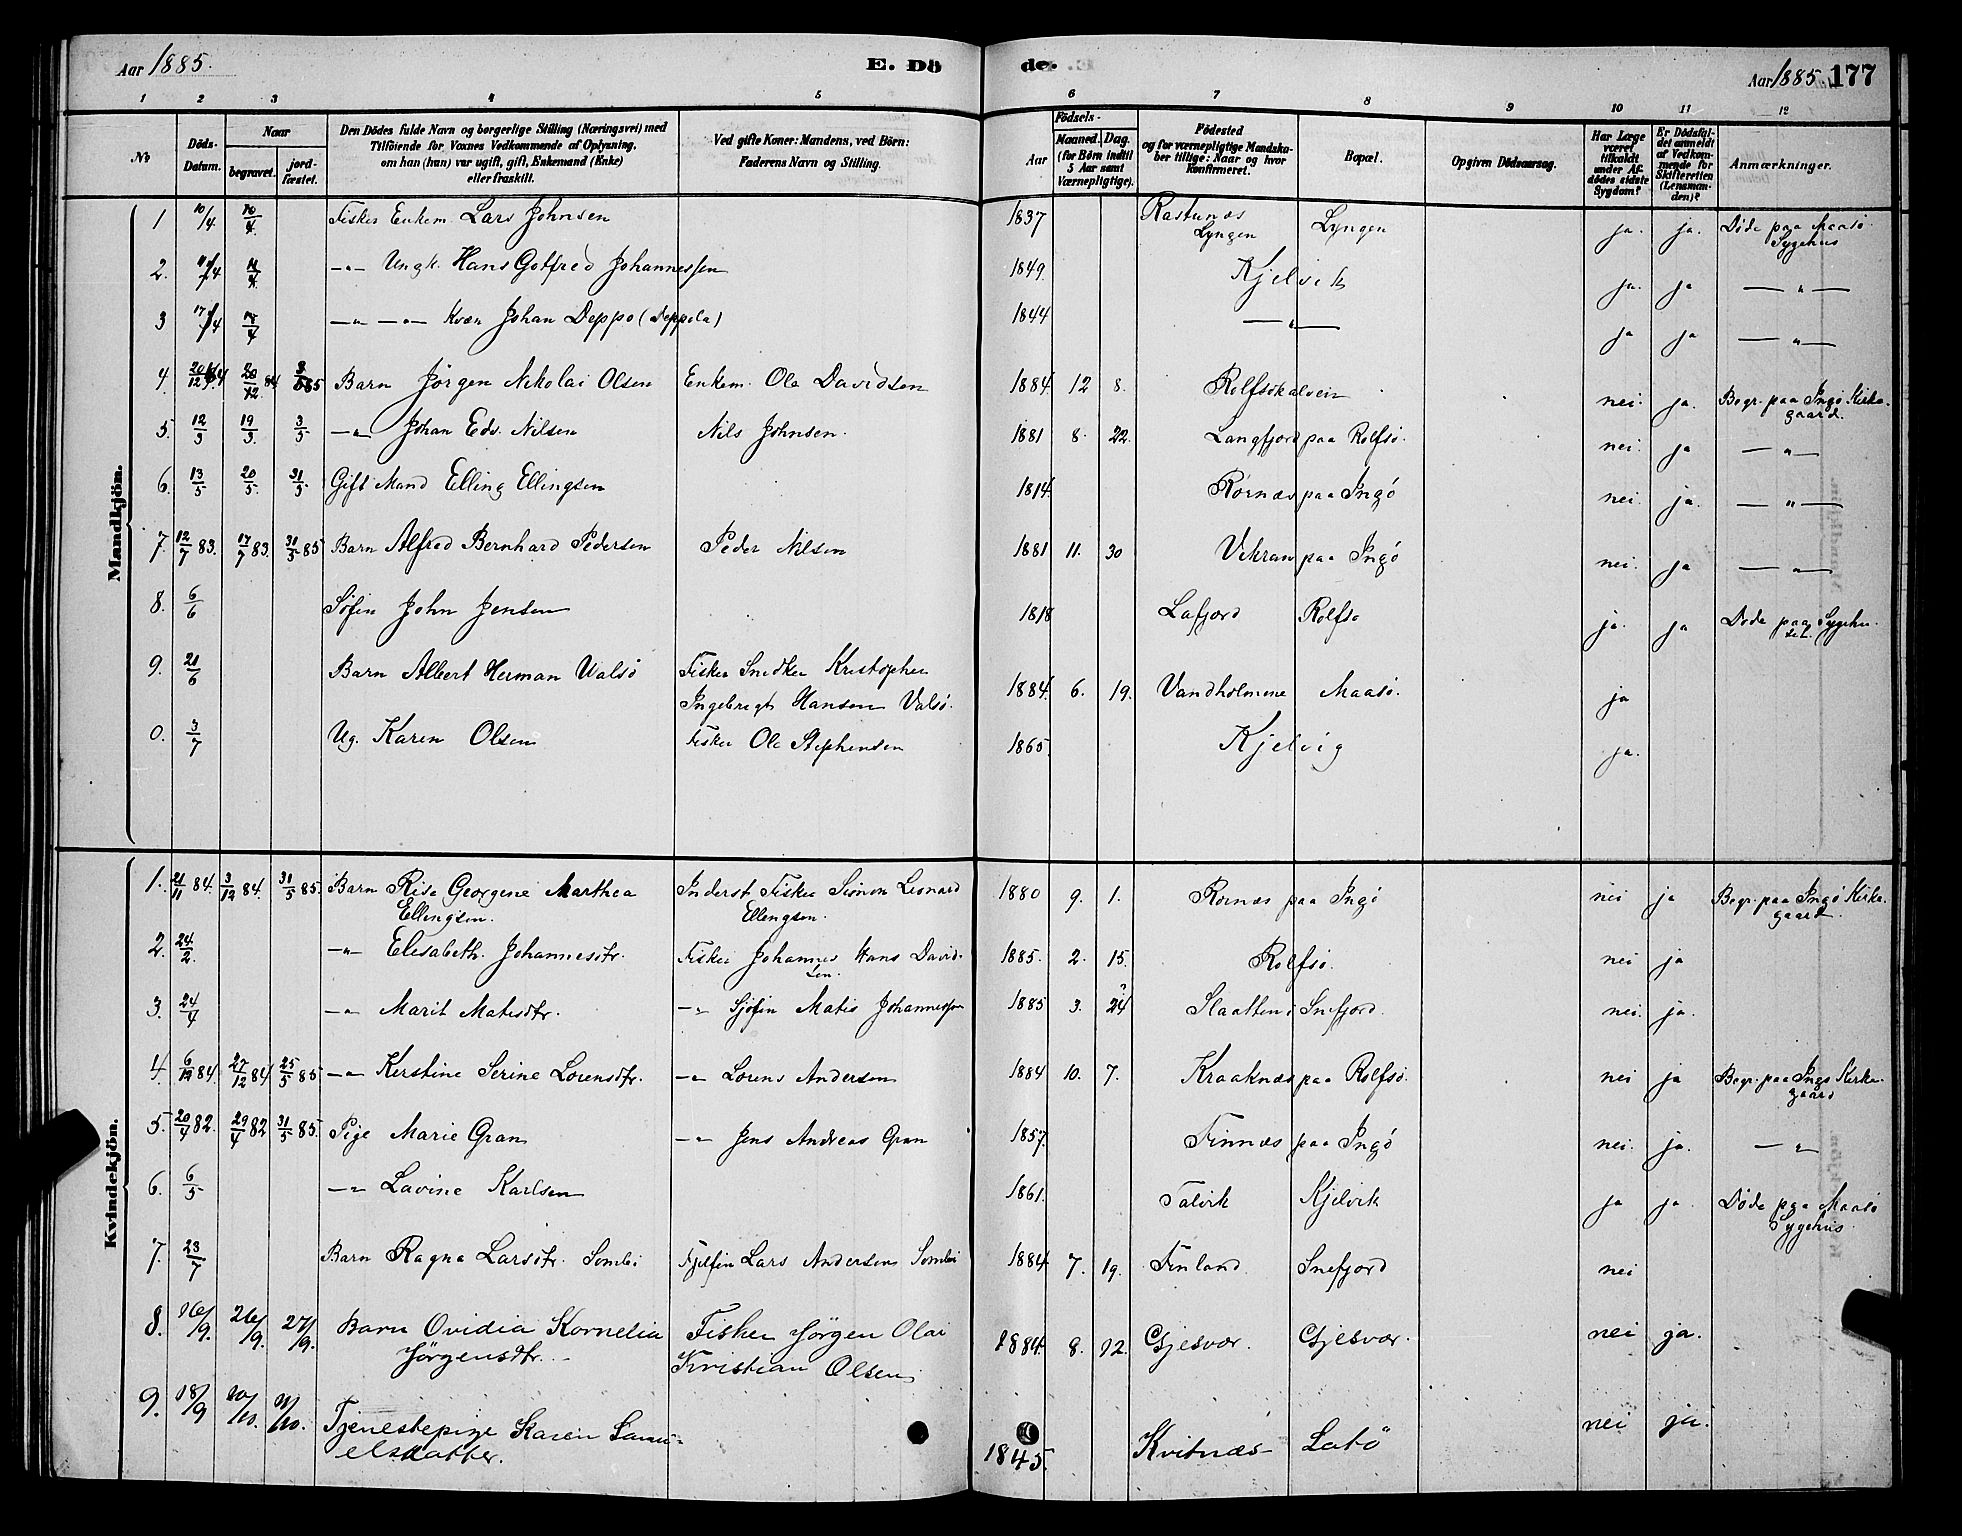 Aar 1885. E. Dö de. Aar 1885. 177
1 2 3 4 5 6 7 8 9 10 11 12
No
Döds-Datum.
Naar
begravet.
jordfæstet.
Den Dödes fulde Navn og borgerlige Stilling (Næringsvei) med
Tilföiende for Voxnes Vedkommende af Oplysning,
om han (hun) var ugift, gift, Enkemand (Enke)
eller fraskilt.
Ved gifte Koner: Mandens, ved Börn:
Faderens Navn og Stilling.
Födsels-
Aar
Maaned. Dag.
(for Börn indtil
5 Aar samt
Værnepligtige).
Födested
og for værnepligtige Mandskaber
tillige: Naar og hvor
Konfirmeret.
Bopæl.
Opgiven Dödsaarsag.
Har Læge
været
tilkaldt
under Afdödes
sidste
Sygdom?
Er Dödsfaldet
anmeldt
af Vedkommende
for
Skifteretten
(Lensmanden)?
Anmærkninger.
Mandkjön.
1 10/4 Fisker Enkem. Lars Johnsen 1837 Lyngen Lyngen ja. ja. Döde paa Maasö
Sygehus
2. —"— Ungk. Hans Gotfred Johannessen 1849. Kjelvik ja. ja —"—
3 —"— —"— Kvæn Johan Deppo (Deppela) 1844 —"— ja ja —"—
4. Barn Jörgen Nikolai Olsen Enkem. Ole Davidsen 1884. 12 8. nei. ja. Begr. paa Ingö Kirke-
gaard.
5. 12/3 19/3. 3/5 —"— Johan Eds. Nilsen Nils Johnsen. 1881 8. 22. Langfjord paa Rolfsö. nei. ja —"—
6. 13/5 20/5. 31/5. Gift Mand Elling Ellingsen 1814. Rörnæs paa Ingö nei ja. —"—
7. 12/7 83. 17/7 83. 31/5 85 Barn Alfred Bernhard Pedersen Peder Nilsen 1881 11. 30 paa Ingö nei. ja —"—
8. 6/6 Söfin John Jensen 1818 Lafjord Rolfsö ja. ja Döde paa Sygehu-
set.
9. 21/6 Barn Albert Herman Valsö Fisker Snedker Kristopher
Ingebrigt Hansen Valsö. 1884. 6. 19. Vandholmene Maasö. ja
0. 3/7 Ug. Karen Olsen Fisker Ole Stephensen 1865 Kjelvig ja.
Kvindekjön.
1. 21/11 84. 3/12 84. 31/5 85. Barn Rise Georgene Marthea Inderst Fisker Simon Leonard 1880 9. 1. Rörnæs paa Ingö nei ja Begr. paa Ingö Kirke-
Ellingsen. Ellingsen. gaard.
2. 24/2. —"— Elisabeth Johannesdtr. Fisker Johannes Hans David-
sen. 1885. 2. 15. Rolfsö. nei ja
3. 24/4 —"— Marit Matisdtr. —"— Sjöfin Matis Johannessen 1885 3. 24? Slaatten i Snefjord. nei. ja.
4. 6/12 84. 27/12 84 25/5 85 —"— Kerstine Serine Lorensdtr. —"— Lorens Andersen 1884 10. 7. Kraaknæs paa Rolfsö. nei ja Begr. paa Ingö Kirke-
gaard
5. 20/4 82. 29/4 82 31/5 85. Pige Marie Gran —"— Jens Andreas Gran 1857. Finnæs paa Ingö nei. ja. —"—
6. 6/5 —"— Lavine Karlsen 1861. Talvik Kjelvik ja ja Döde paa Maasö
Sygehus
7. 23/7 Barn Ragna Larsdtr. Sombi Fjelfin Lars Andersen Sombi 1884. 7. 19. Finland Snefjord nei
8. 16/9. 26/9. 27/9. Barn Ovidia Kornelia Fisker Jörgen Olai 1884. 8. 12. Gjesvær. Gjesvær. nei ja.
Jörgensdtr. Kristian Olsen
9. 18/9 Tjenestepige Karen Samu-
elsdatter. 1845. Kvitnæs Latö nei ja.